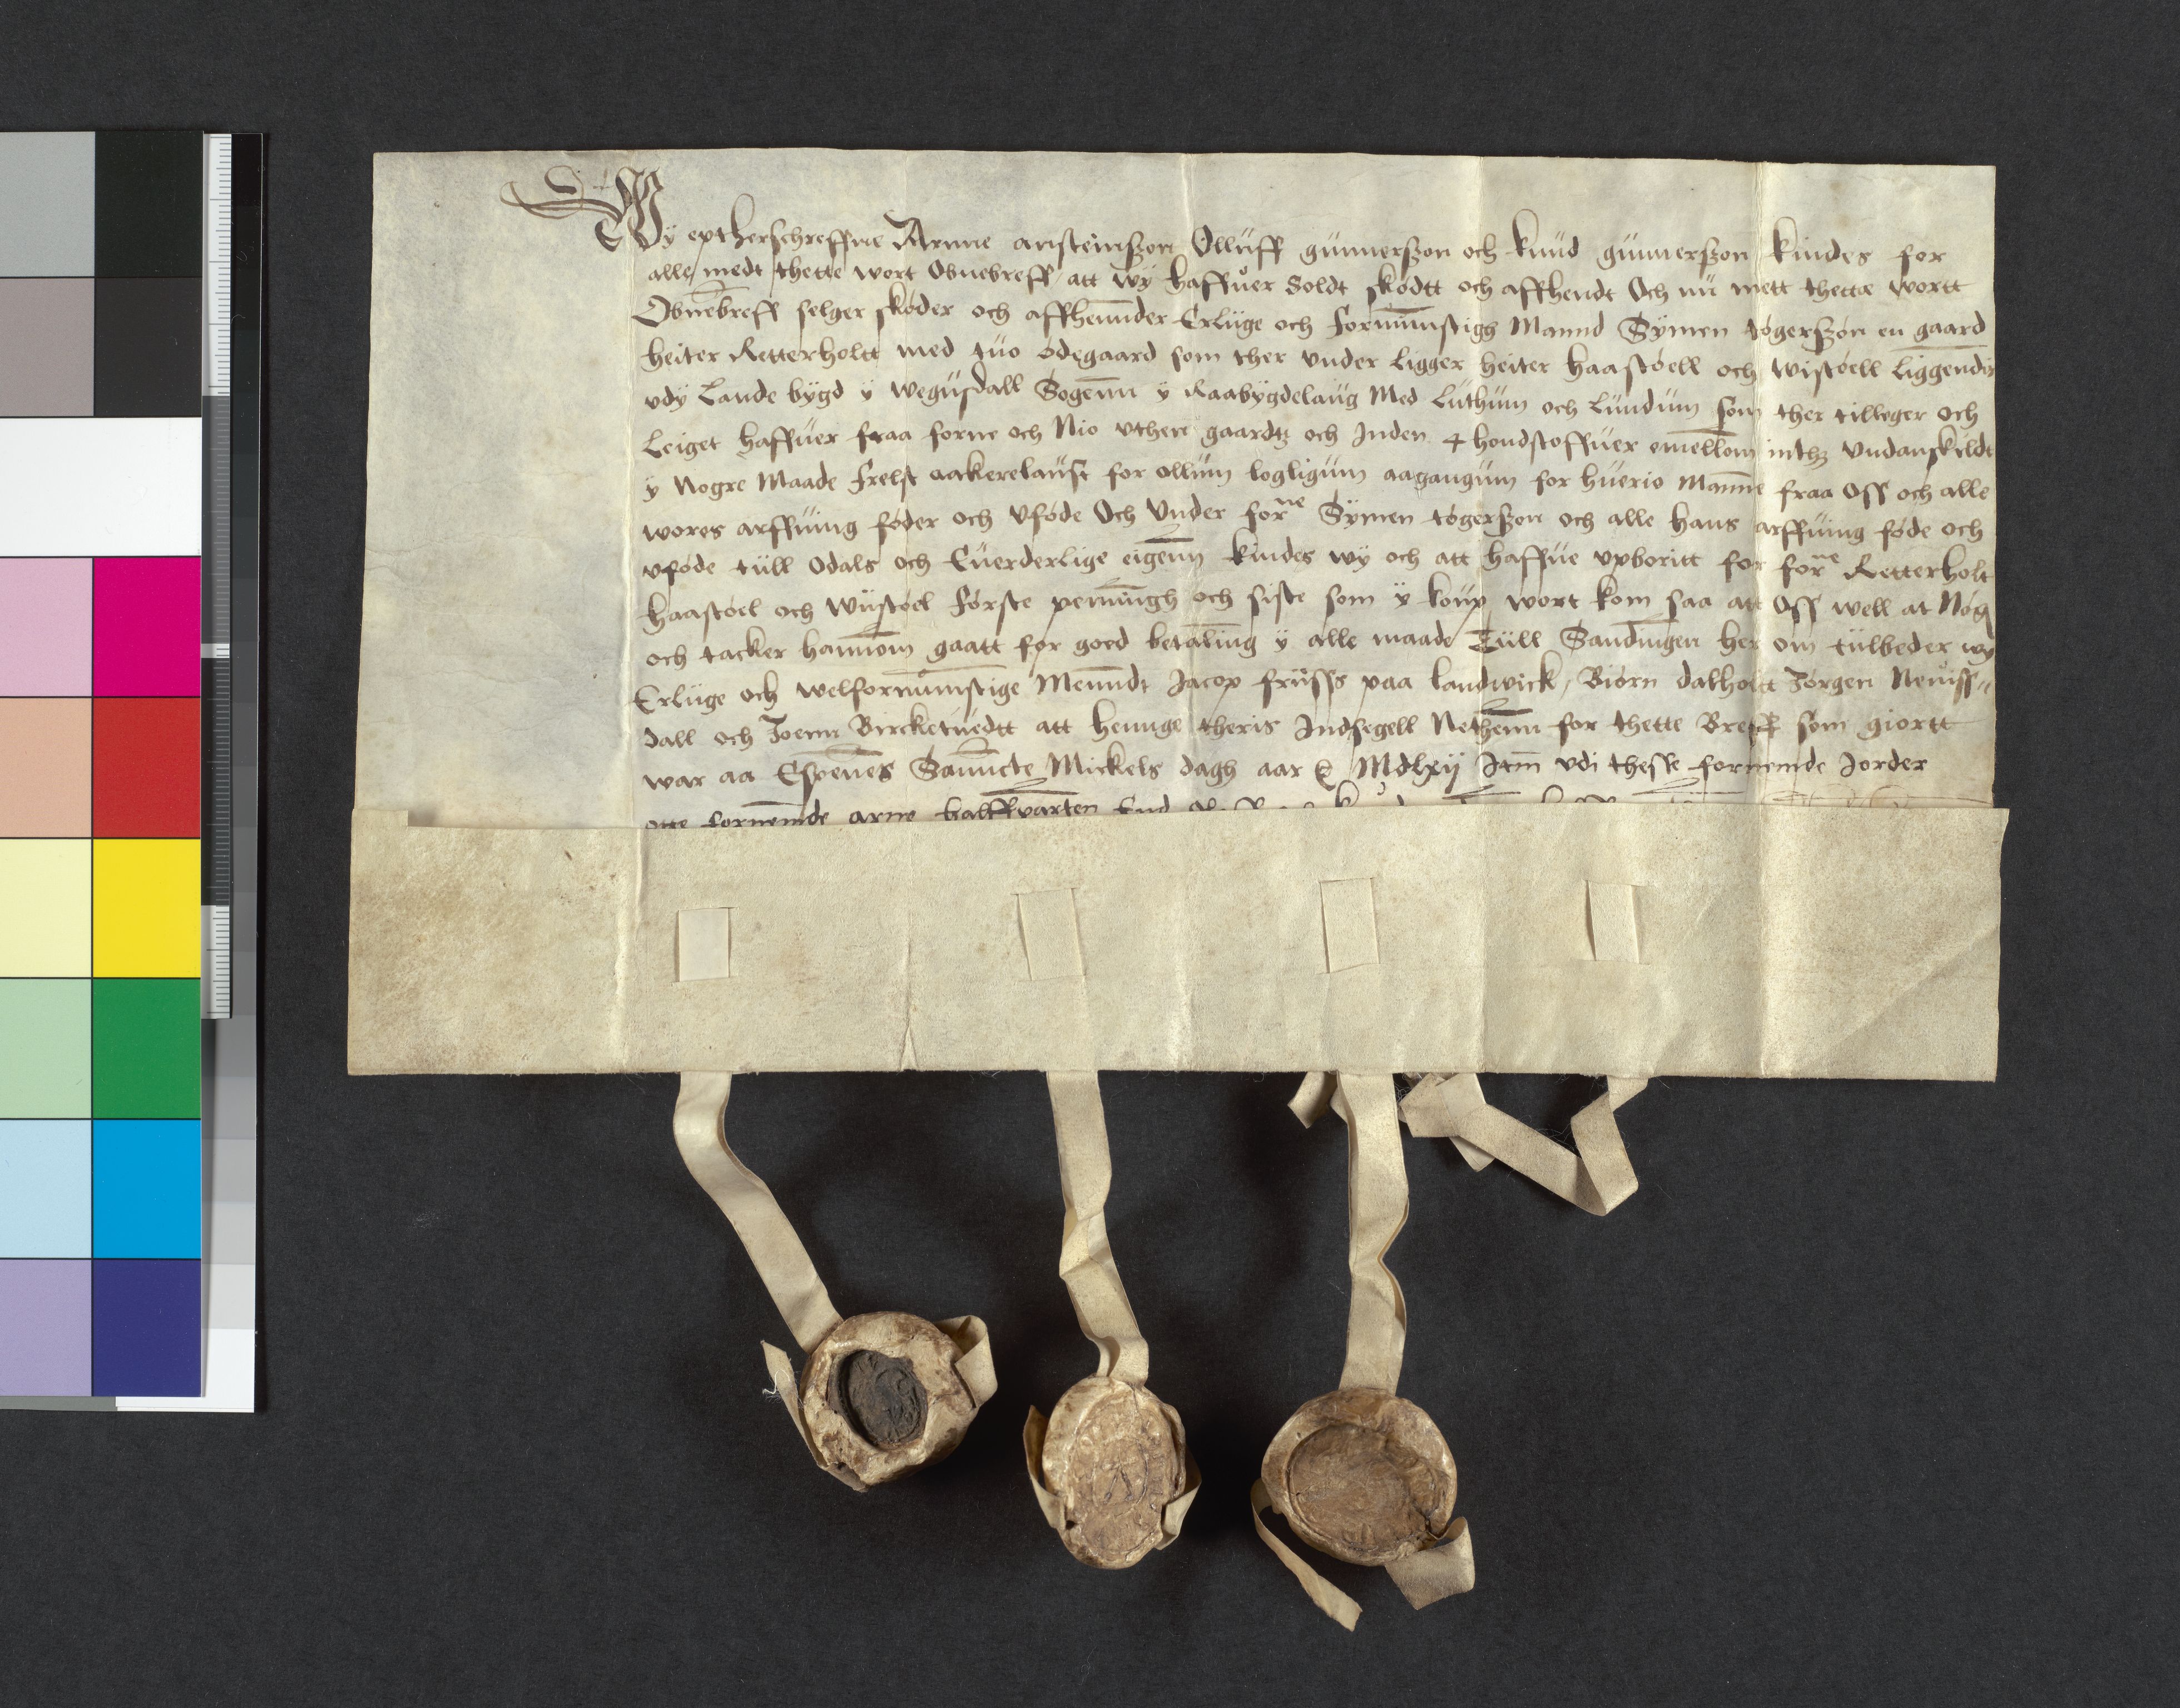 Wy eptherschreffne Arnne ansteinszon Olluff gunnerszon och knud gunnerszon kindes for
alle medt thette wort Obnebreff att wy haffuer Soldt skødtt och affhendt Och nu mett thettæ wortt
Obnebreff selger skøder och affhennder Erlüge och fornumstigh Mannd Sÿmen tøgerszøn en gaard
heiter Retterholtt med tuo ødegaard som ther vnder ligger heiter haastøell och wistøell liggendis
vdÿ Lande bÿgd ÿ wegusdall Sogenn ÿ Raabÿgdelaug Med Luthum och Lundum som ther tilleger och
Leiget haffuer fraa forne och Nio vthen gaardtz och Inden 4 hondstoffuer emellom inthz Vndanskildt
ÿ Nogre Maade frelst aakerelaust for ollum logligum aagangum for huerio Manne fraa Oss och alle
wores arffuing føder och Vføde Och Vnder forne Sÿmen tøgerszon och alle hans arffuing føde och
vføde tüll Odals och Euerderlige eigenn kindes wÿ och att haffue vpboritt for forne Retterholt
haastøel och wüstøel første penningh och siste som ÿ køup wort kom saa att Oss well at Nøg
och tacker hannom gaatt for goed betaling ÿ alle maade Tüll Sandingen her om tülbeder wÿ
Erlüge och welfornumstige Menndt Jacop frusss paa landwick, Biørn dalholtt Jørgen Neuiss-
dall och Joenn Bircketuedtt att henge theris Indsegell Nethenn for thette Breff som giortt
war aa Espenes Sanncte Mickels dagh aar &c Mdlxij Itm vdi thesse fornemde Jorder
otte fornemde arne halffparten End